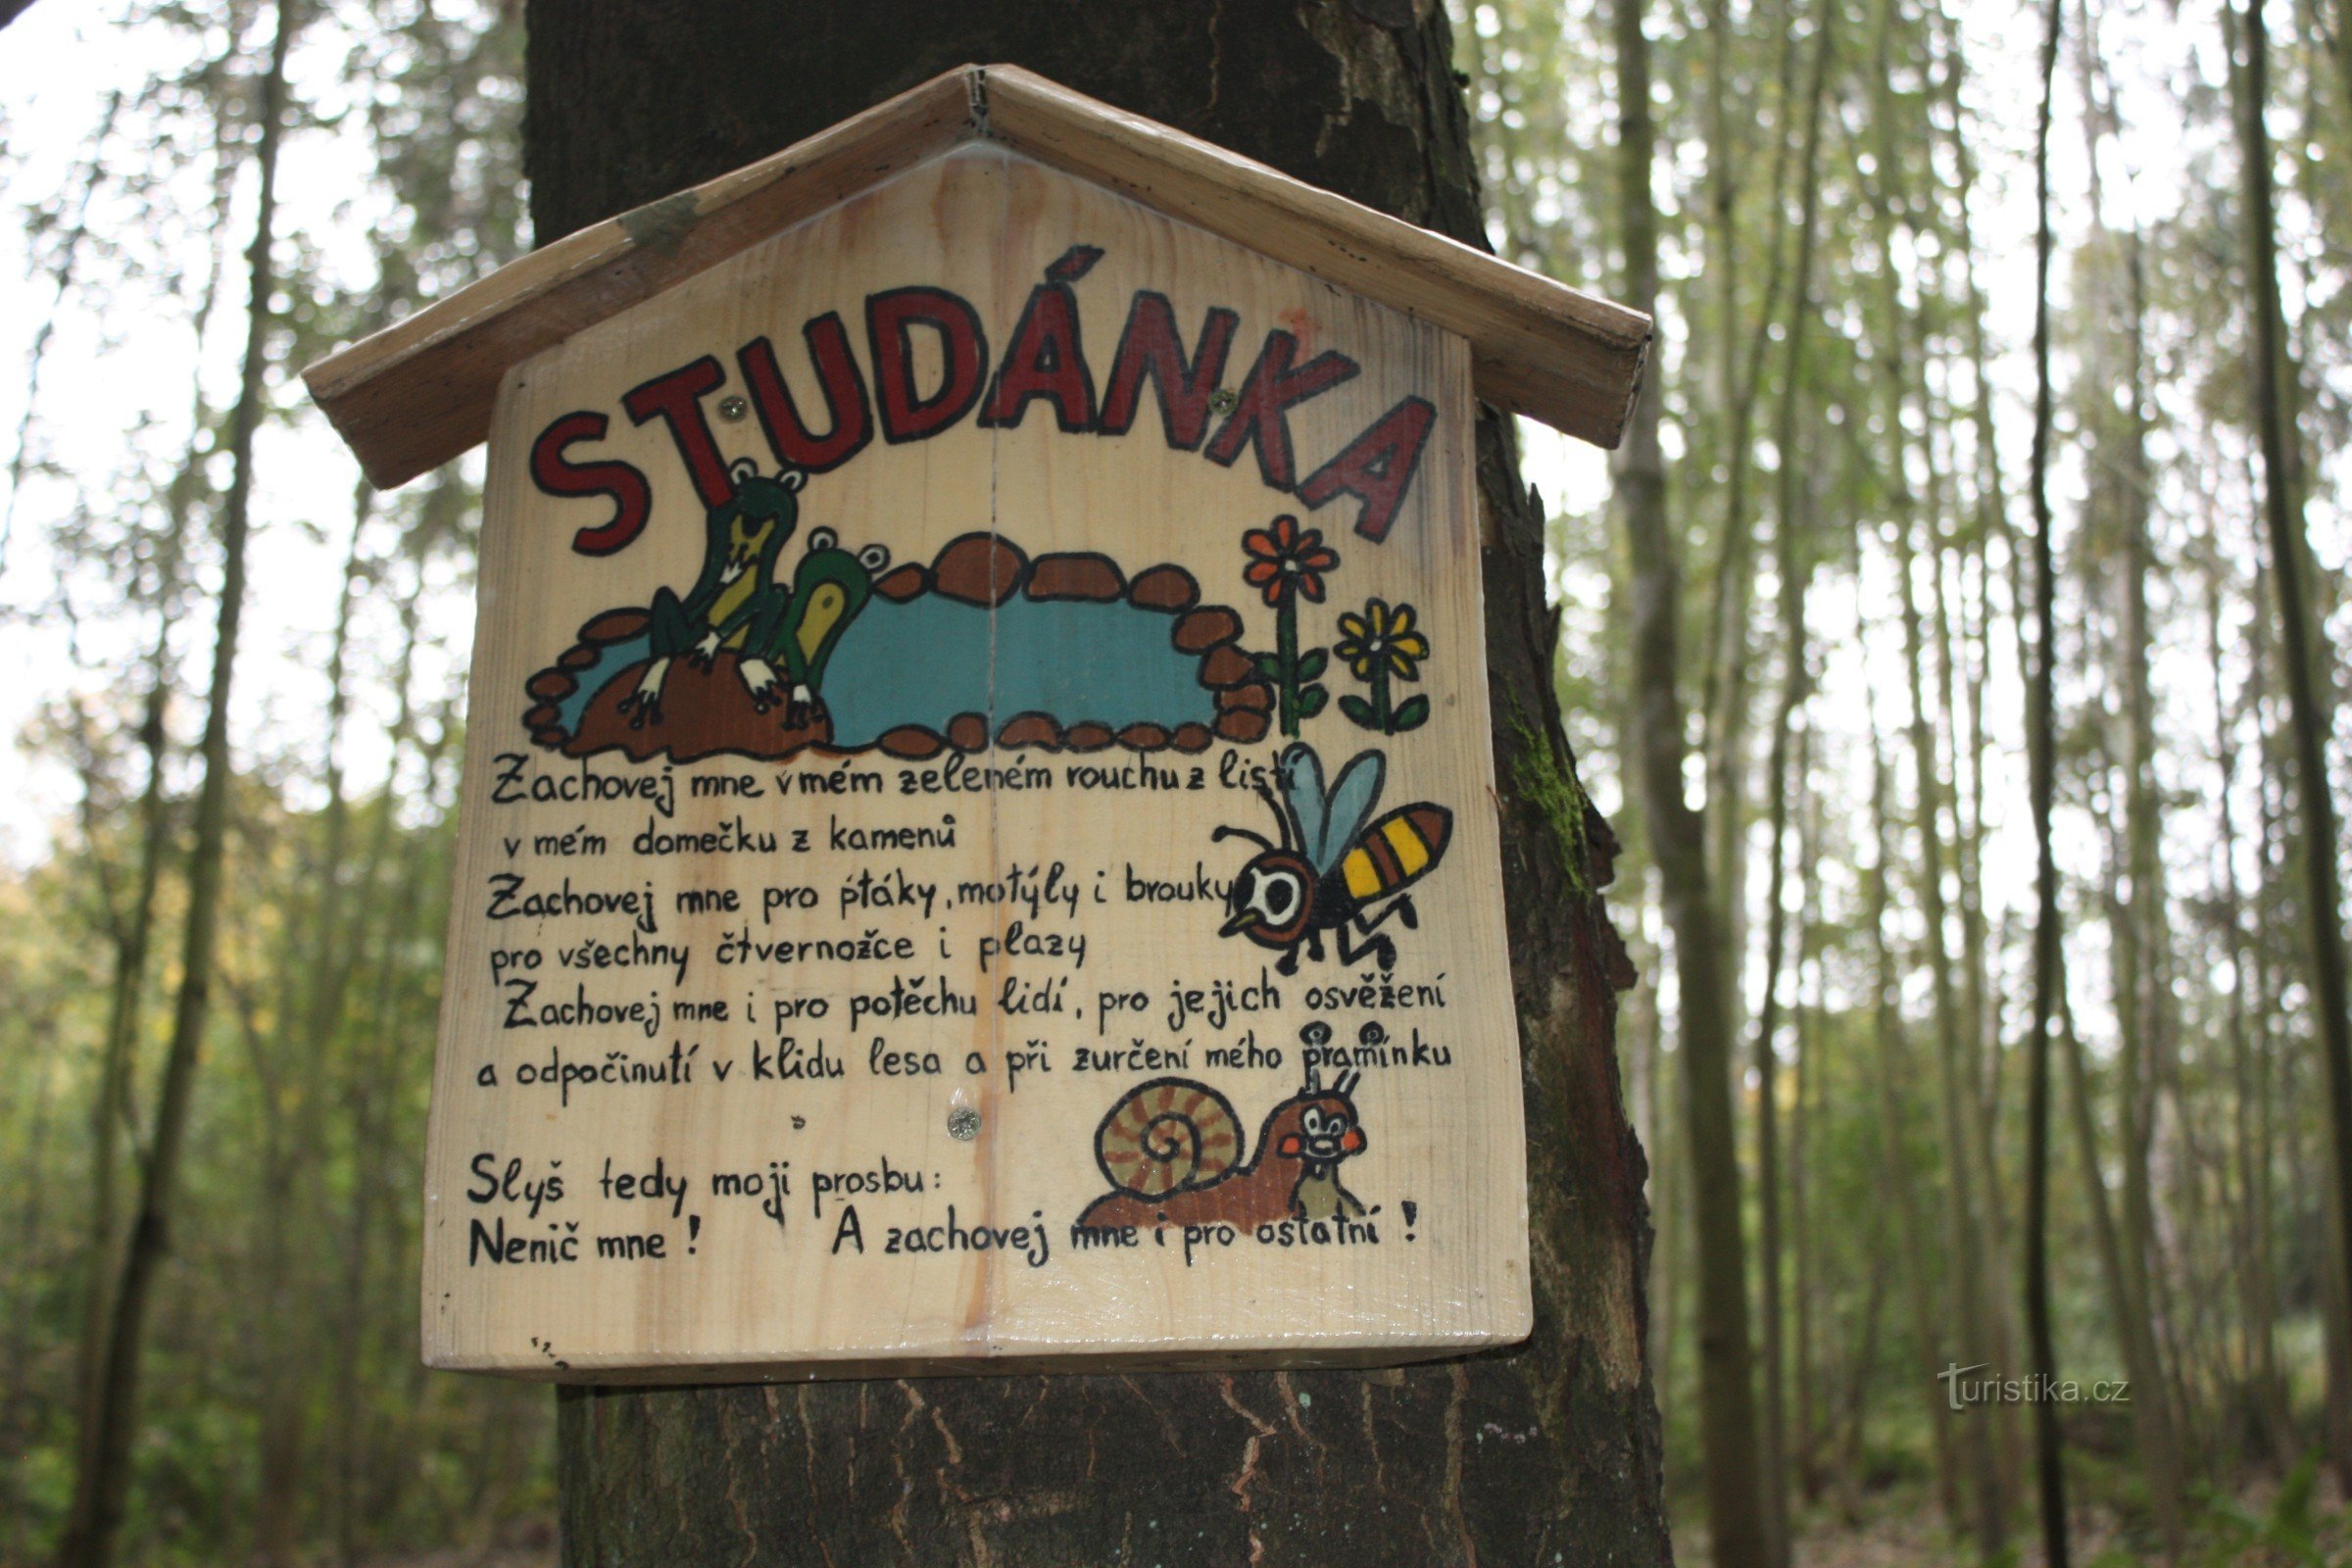 STUDÁNKA
Zachovej mne v mém zeleném rouchu z listí
v mém domečku z kamenů
Zachovej mne pro ptáky, motýly i brouky
pro všechny čtvernožce i plazy
Zachovej mne i pro potěchu lidí, pro jejich osvěžení
a odpočinutí v klidu lesa a při zurčení mého pramínku
Slyš tedy moji prosbu:
Nenič mne! A zachovej mne i pro ostatní!
Turistika.cz